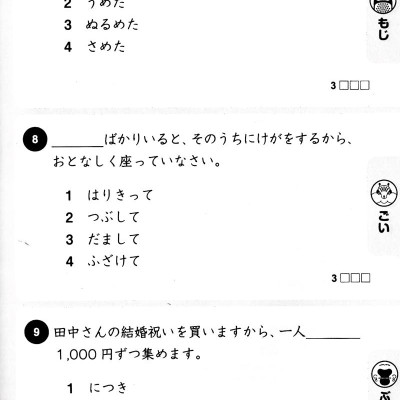 2 うめた
3 ぬるめた
4 さめた
3 □□□
もじ
8 ______ばかりいると、そのうちにけがをするから、
おとなしく座っていなさい。
1 はりきって
2 つぶして
3 だまして
4 ふざけて
3 □□□
ごい
9 田中さんの結婚祝いを買いますから、一人______
1,000 円ずつ集めます。
1 につき